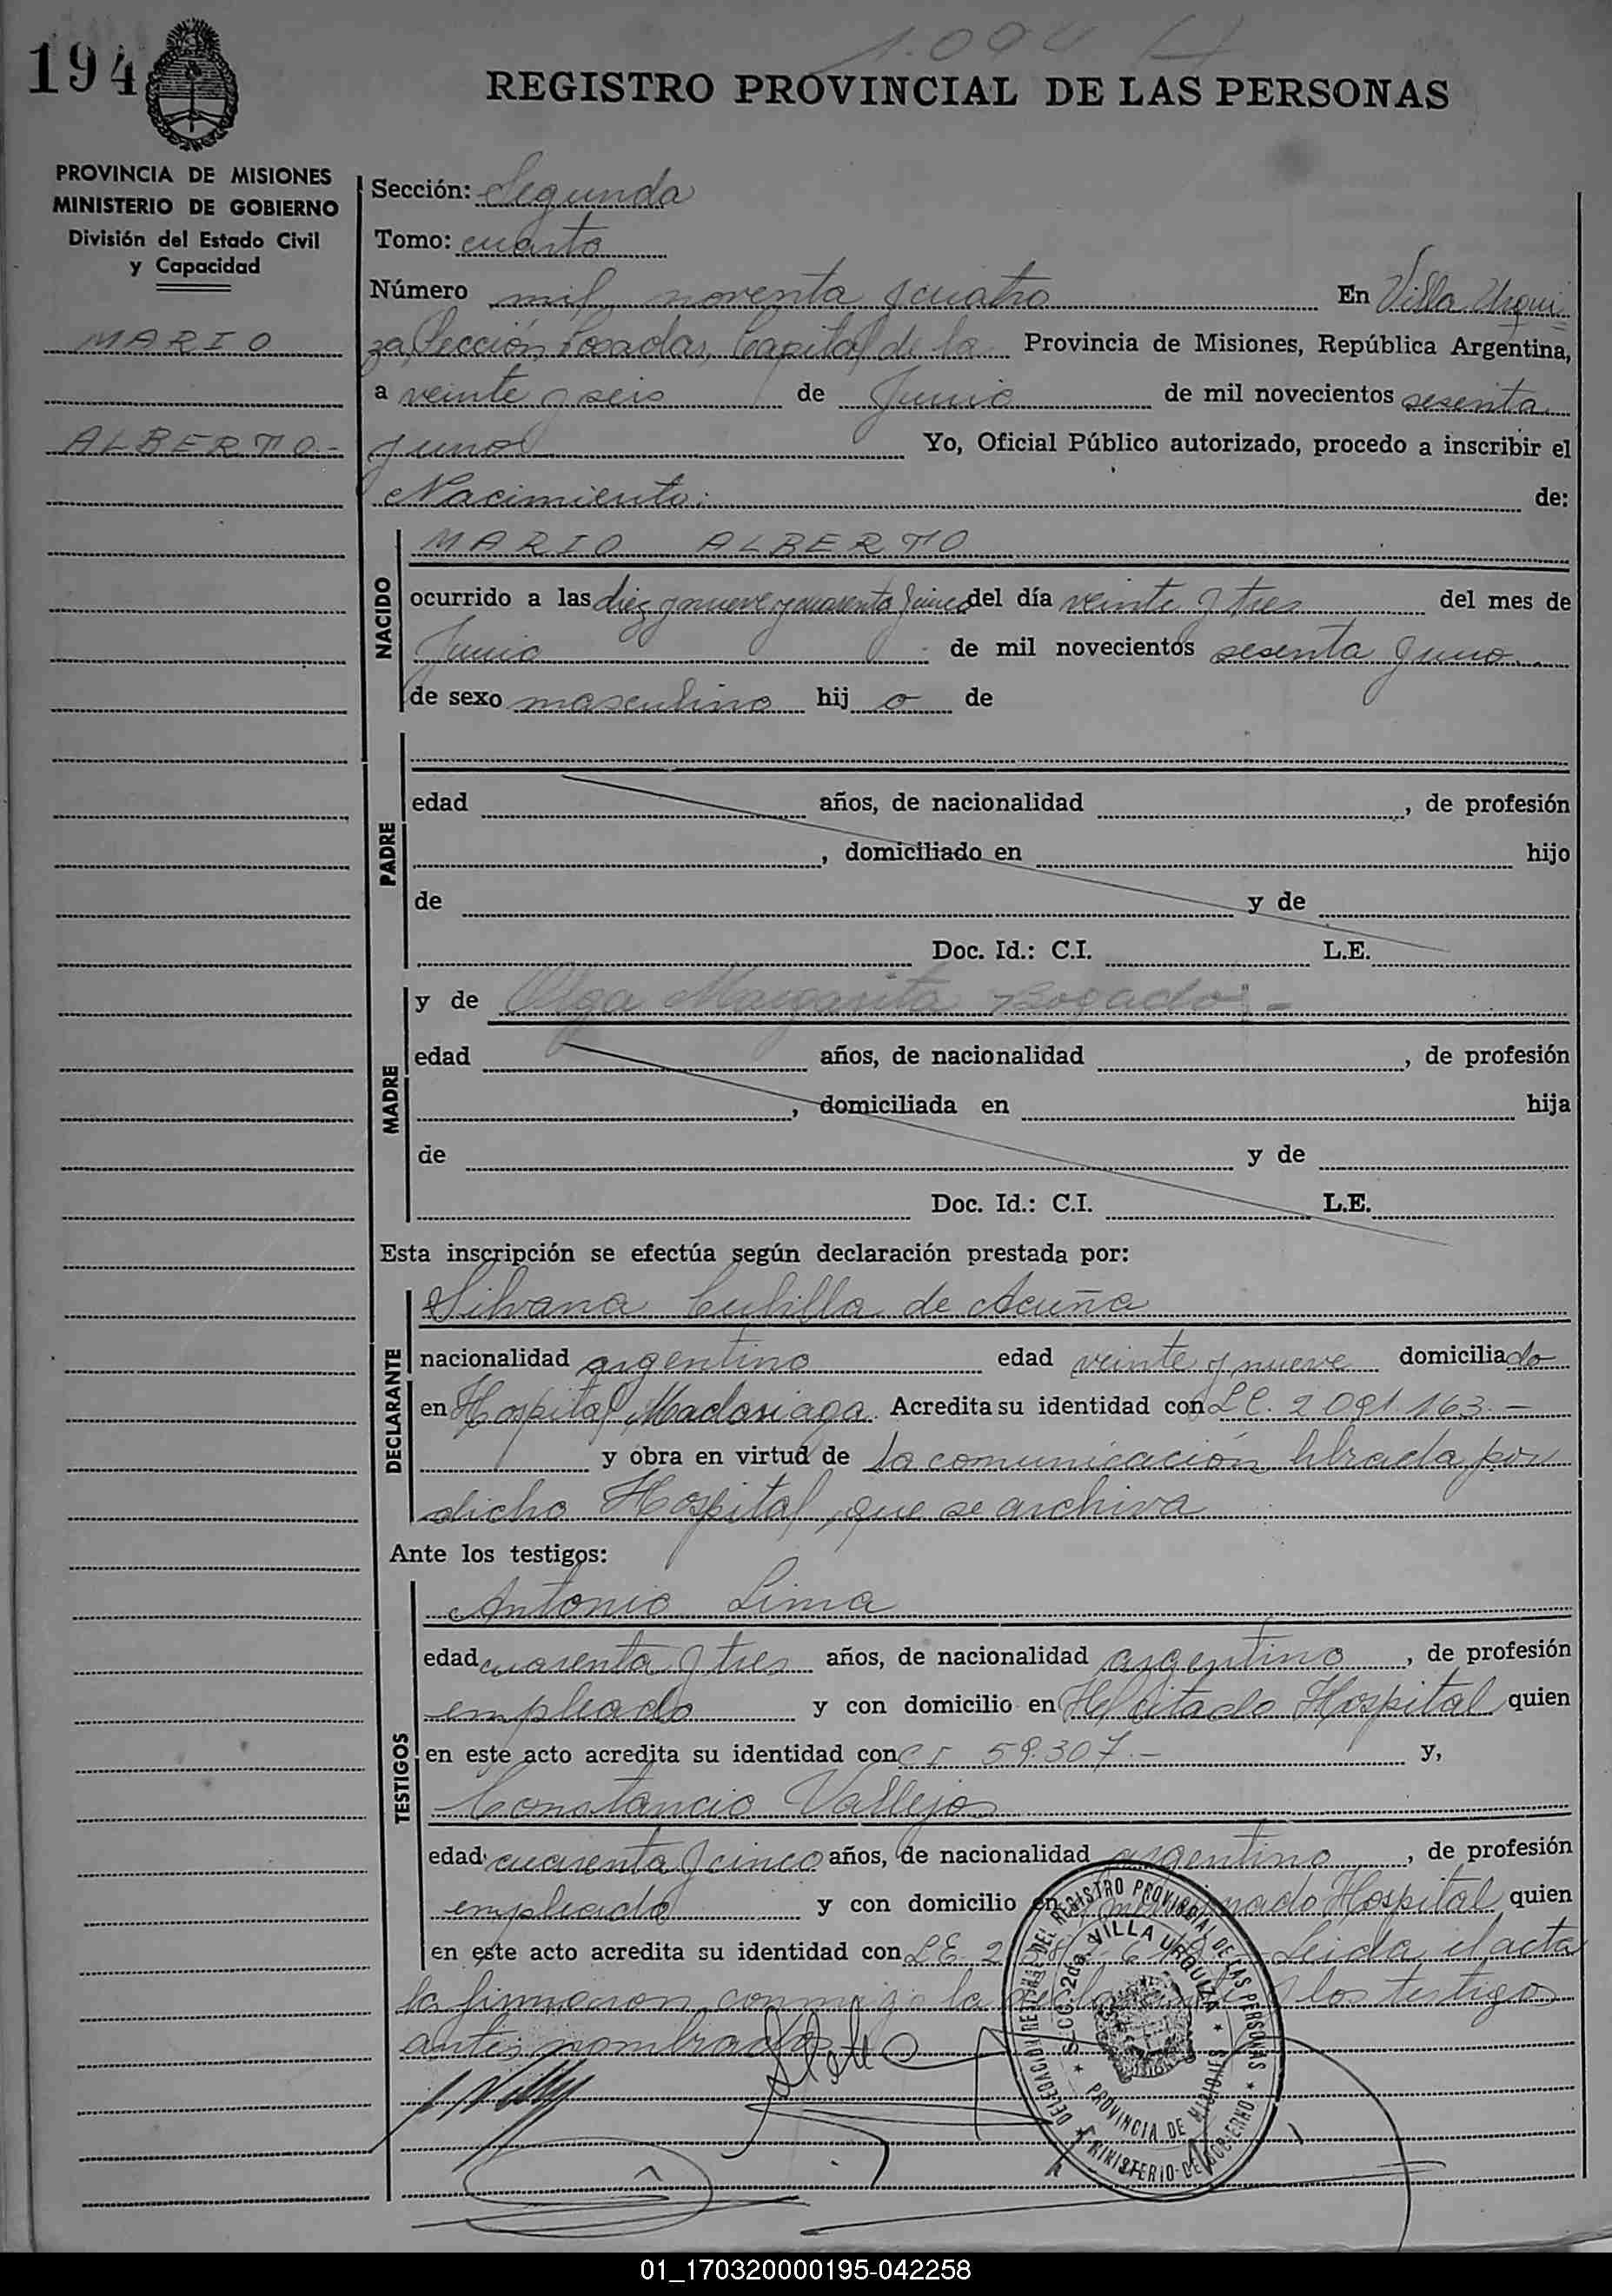 194
REGISTRO PROVINCIAL DE LAS PERSONAS
PROVINCIA DE MISIONES
MINISTERIO DE GOBIERNO
División del Estado Civil
y Capacidad
MARIO
ALBERTO.-
Sección: Segunda
Tomo: cuarto
Número mil noventa y cuatro En Villa Urqui
za, Sección Posadas, Capital de la Provincia de Misiones, República Argentina,
a veinte y seis de Junio de mil novecientos sesenta
y uno Yo, Oficial Público autorizado, procedo a inscribir el
Nacimiento: de:
NACIDO
MARIO ALBERTO
ocurrido a las diez y nueve y cuarenta y cinco del día veinte y tres del mes de
Junio de mil novecientos sesenta y uno
de sexo masculino hij o de
PADRE
edad años, de nacionalidad , de profesión
, domiciliado en hijo
de y de
Doc. Id.: C.I. L.E.
MADRE
y de Olga Margarita Bogado
edad años, de nacionalidad , de profesión
, domiciliada en hija
de y de
Doc. Id.: C.I. L.E.
Esta inscripción se efectúa según declaración prestada por:
DECLARANTE
Silvana Cubilla de Acuña
nacionalidad argentino edad veinte y nueve domiciliado
en Hospital Madariaga. Acredita su identidad con L C. 2 091 163.-
y obra en virtud de la comunicación librada por
dicho Hospital, que se archiva
Ante los testigos:
TESTIGOS
Antonio Lima
edad cuarenta y tres años, de nacionalidad argentino, de profesión
empleado y con domicilio en el citado Hospital quien
en este acto acredita su identidad con C I 59.307.- y,
Constancio Vallejos
edad cuarenta y cinco años, de nacionalidad argentino, de profesión
empleado y con domicilio en Hospital quien
en este acto acredita su identidad con L E. Leida el acta
la firmaron conmigo la los testigos
antes nombrados
DELEGACION REGIONAL DEL REGISTRO PROVINCIAL DE LAS PERSONAS
SECC. 2da. VILLA URQUIZA
PROVINCIA DE MISIONES
MINISTERIO DE GOBIERNO
01_170320000195-042258